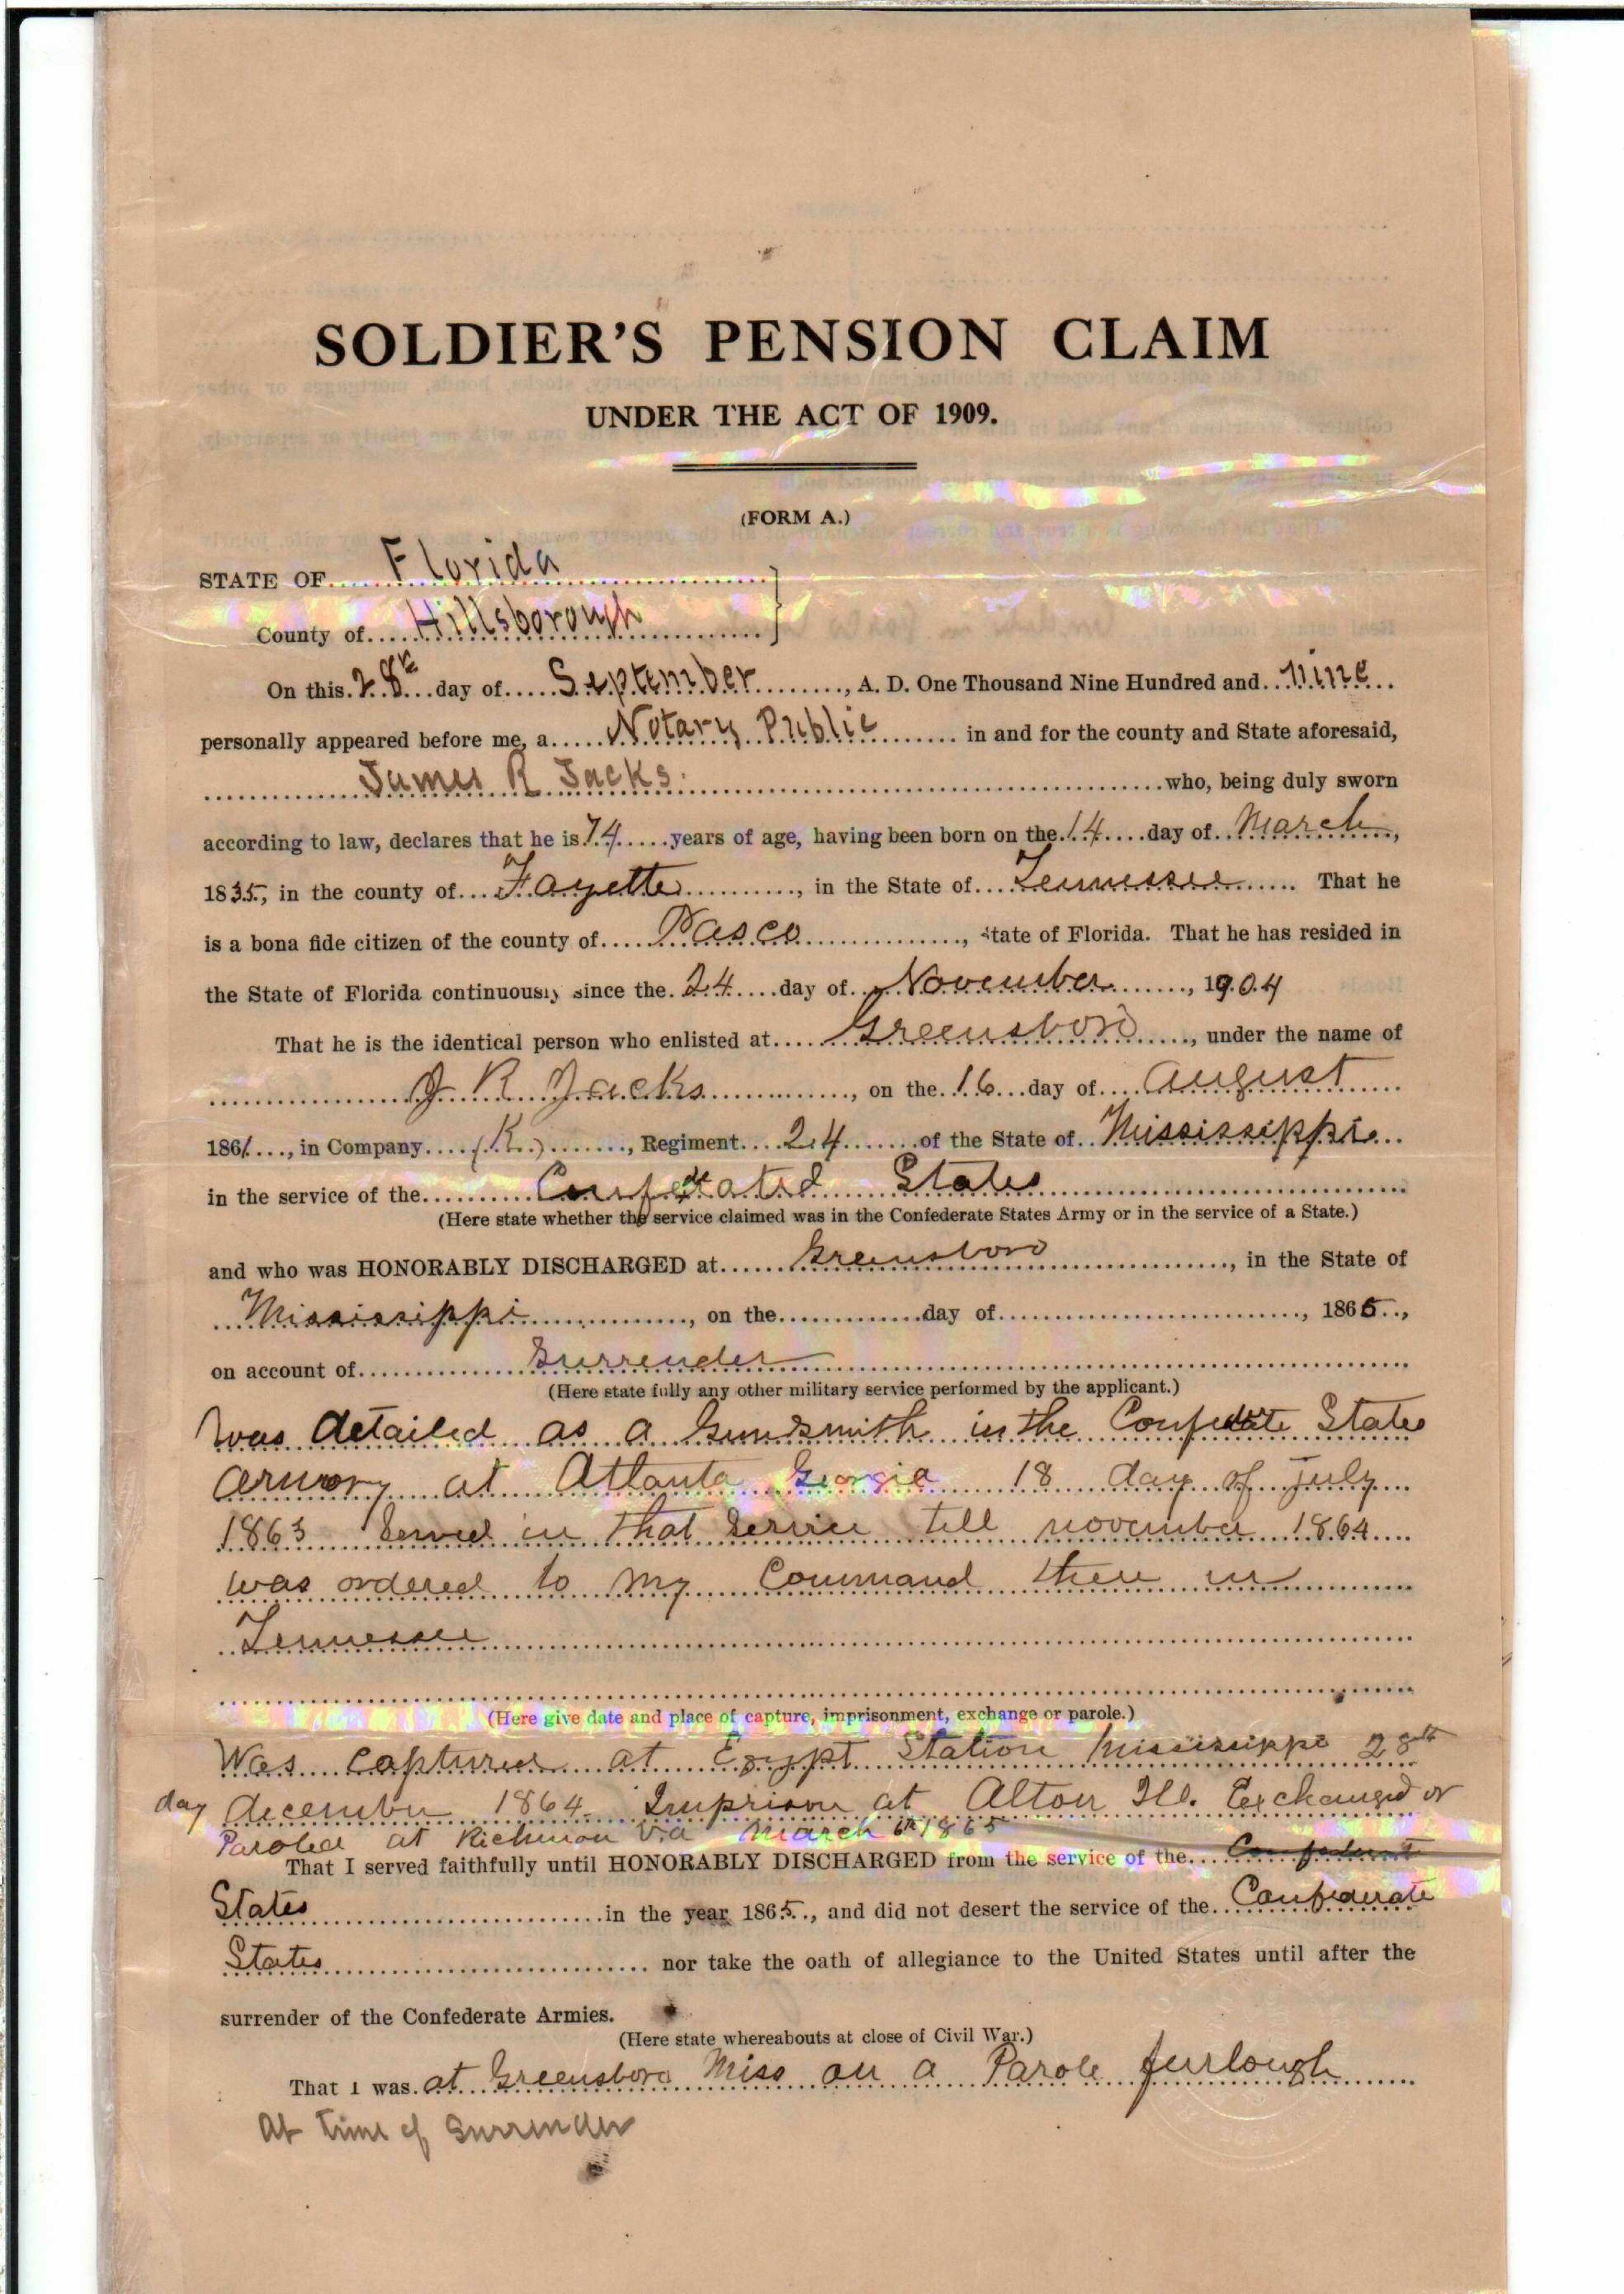 SOLDIER'S PENSION CLAIM
UNDER THE ACT OF 1909.
(FORM A.)
STATE OF Florida
County of Hillsborough
On this 28th day of September, A. D. One Thousand Nine Hundred and nine
personally appeared before me, a Notary Public in and for the county and State aforesaid,
James R Jacks who, being duly sworn
according to law, declares that he is 74 years of age, having been born on the 14 day of March,
1835, in the county of Fayette, in the State of Tennessee. That he
is a bona fide citizen of the county of Pasco, State of Florida. That he has resided in
the State of Florida continuously since the 24 day of November, 1904
That he is the identical person who enlisted at Greensboro, under the name of
J R Jacks, on the 16 day of August
1861, in Company (K), Regiment 24 of the State of Mississippi
in the service of the Confederated States
(Here state whether the service claimed was in the Confederate States Army or in the service of a State.)
and who was HONORABLY DISCHARGED at Greensboro, in the State of
Mississippi, on the day of, 1865,
on account of Surrender
(Here state fully any other military service performed by the applicant.)
Was detailed as a Gunsmith in the Confederate States
armory at Atlanta Georgia 18 day of July
1863 Served in that service till november 1864
was ordered to my Command then in
Tennessee
(Here give date and place of capture, imprisonment, exchange or parole.)
Was captured at Egypt Station Mississippi 28th
day december 1864 Imprison at Alton Ill. Exchanged or
Paroled at Richmon Va March 6th 1865
That I served faithfully until HONORABLY DISCHARGED from the service of the Confederate
States in the year 1865, and did not desert the service of the Confederate
States nor take the oath of allegiance to the United States until after the
surrender of the Confederate Armies.
(Here state whereabouts at close of Civil War.)
That I was at Greensboro Miss on a Parole furlough
At time of Surrender